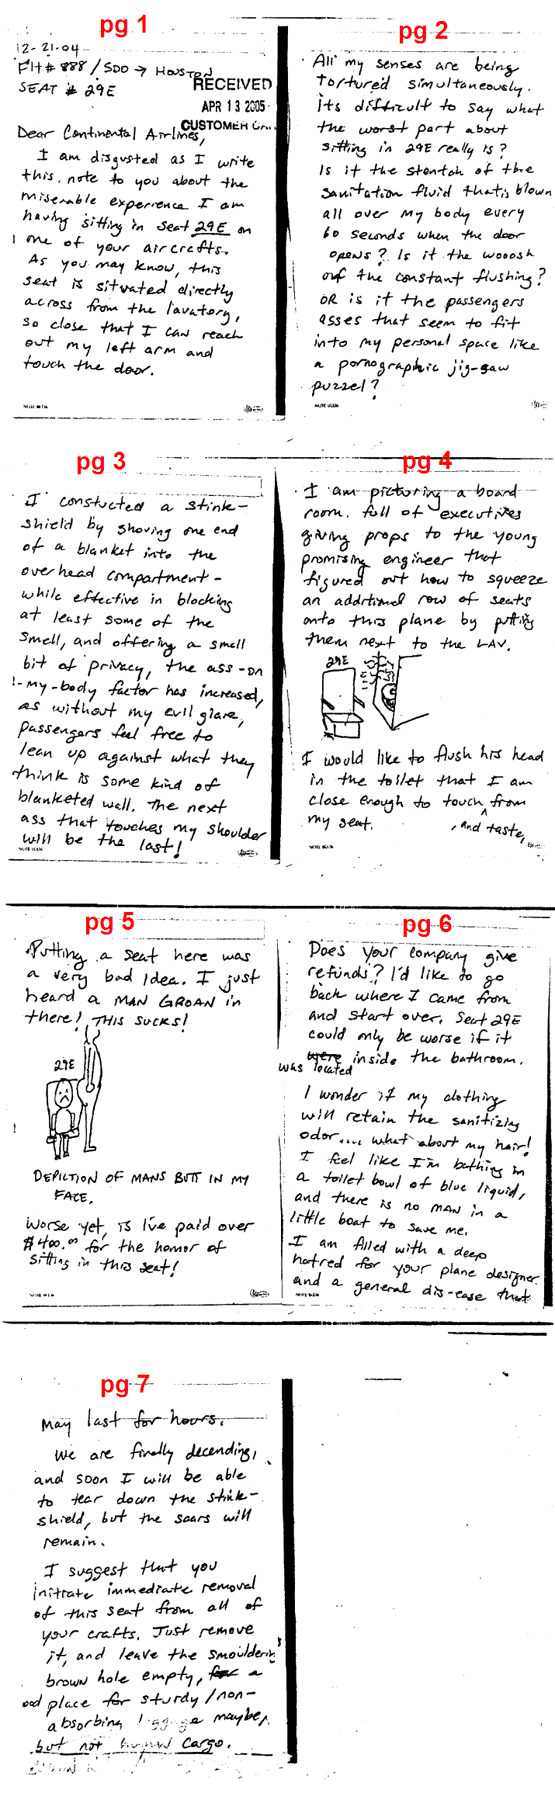 pg 1
12-21-04
Flt# 888 / SDO → HOUSTON
SEAT # 29E
RECEIVED
APR 13 2005
CUSTOMER
Dear Continental Airlines,
I am disgusted as I write
this note to you about the
miserable experience I am
having sitting in seat 29E on
one of your aircrafts.
As you may know, this
seat is situated directly
across from the lavatory,
so close that I can reach
out my left arm and
touch the door.
pg 2
All my senses are being
tortured simultaneously.
Its difficult to say what
the worst part about
sitting in 29E really is?
Is it the stentch of the
sanitation fluid that is blown
all over my body every
60 seconds when the door
opens? Is it the wooosh
of the constant flushing?
OR is it the passengers
asses that seem to fit
into my personal space like
a pornographic jig-saw
puzzel?
pg 3
I constucted a stink-
shield by shoving one end
of a blanket into the
overhead compartment -
while effective in blocking
at least some of the
smell, and offering a small
bit of privacy, the ass-on
-my-body factor has increased,
as without my evil glare,
passengers feel free to
lean up against what they
think is some kind of
blanketed wall. The next
ass that touches my shoulder
will be the last!
pg 4
I am picturing a board
room, full of executives
giving props to the young
promising engineer that
figured out how to squeeze
an additional row of seats
onto this plane by putting
them next to the LAV.
29E
I would like to flush his head
in the toilet that I am
close enough to touch, and taste, from
my seat.
pg 5
Putting a seat here was
a very bad idea. I just
heard a MAN GROAN in
there! THIS SUCKS!
29E
DEPICTION OF MANS BUTT IN MY
FACE.
Worse yet, is I've paid over
$400.00 for the honor of
sitting in this seat!
pg 6
Does your company give
refunds? I'd like to go
back where I came from
and start over. Seat 29E
could only be worse if it
was located inside the bathroom.
I wonder if my clothing
will retain the sanitizing
odor.... what about my hair!
I feel like I'm bathing in
a toilet bowl of blue liquid,
and there is no man in a
little boat to save me.
I am filled with a deep
hatred for your plane designer
and a general dis-ease that
pg 7
May last for hours.
We are finally decending,
and soon I will be able
to tear down the stink-
shield, but the scars will
remain.
I suggest that you
initiate immediate removal
of this seat from all of
your crafts. Just remove
it, and leave the smouldering
brown hole empty, a
good place for sturdy/non-
absorbing luggage maybe,
but not human cargo.